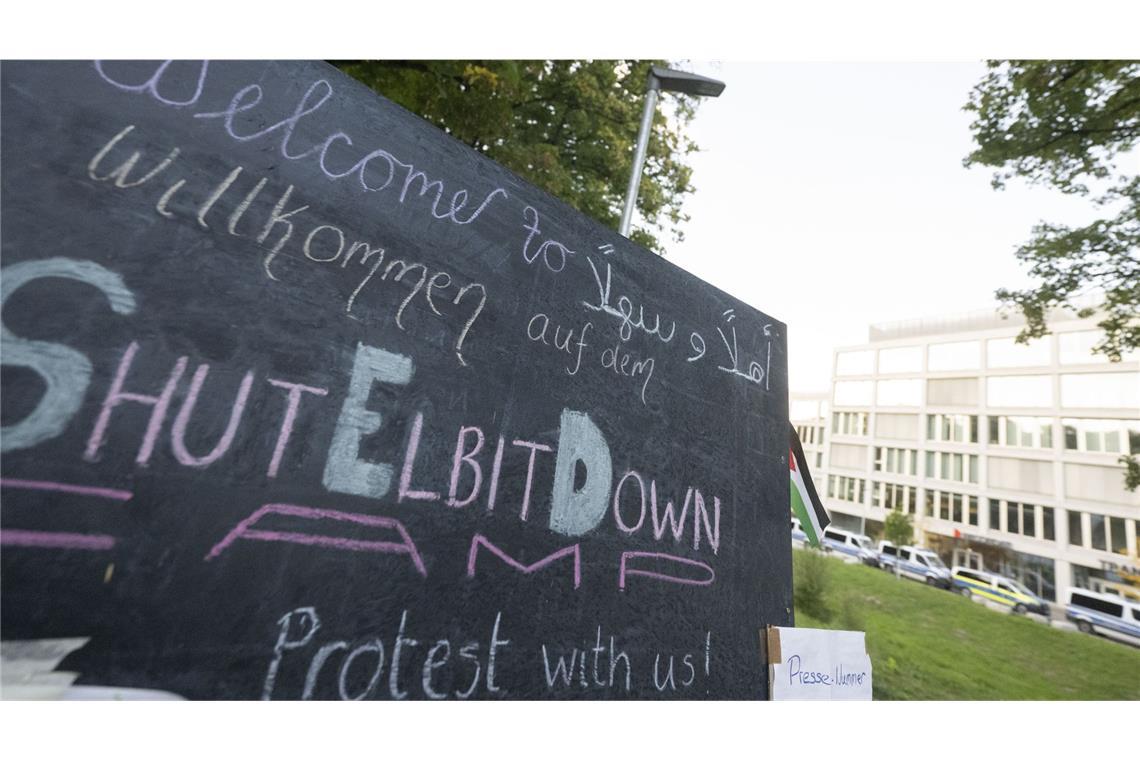 Welcome to
أهلاً و سهلاً
Willkommen auf dem
SHUT ELBIT DOWN
CAMP
Protest with us!
Presse-Nummer